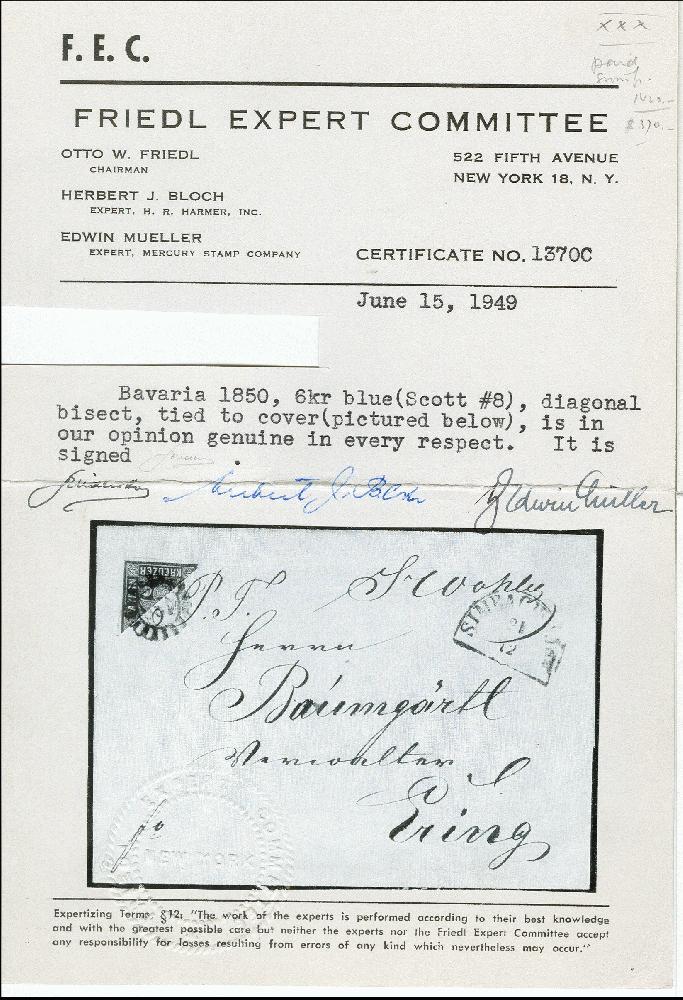 x x x
paid
F. E. C.
FRIEDL EXPERT COMMITTEE
OTTO W. FRIEDL
CHAIRMAN
522 FIFTH AVENUE
NEW YORK 18, N. Y.
HERBERT J. BLOCH
EXPERT, H. R. HARMER, INC.
EDWIN MUELLER
EXPERT, MERCURY STAMP COMPANY
CERTIFICATE NO. 1370C
June 15, 1949
Bavaria 1850, 6kr blue(Scott #8), diagonal
bisect, tied to cover(pictured below), is in
our opinion genuine in every respect. It is
signed
Herbert J. Bloch Edwin Müller
KREUZER
P. T.
SIMBACH
21
12
Herrn
Baumgärtl
Verwalter
Ering
NEW YORK
Expertizing Terms, §12: "The work of the experts is performed according to their best knowledge
and with the greatest possible care but neither the experts nor the Friedl Expert Committee accept
any responsibility for losses resulting from errors of any kind which nevertheless may occur."